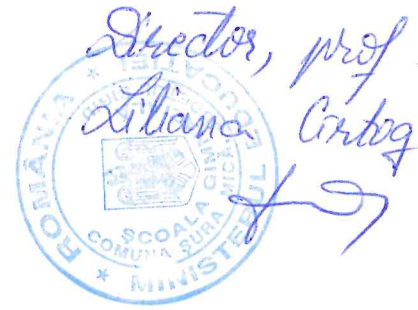 Director, prof.
Liliana Cirtog
ROMÂNIA * MINISTERUL EDUCAȚIEI *
ȘCOALA
COMUNA ȘURA MICĂ